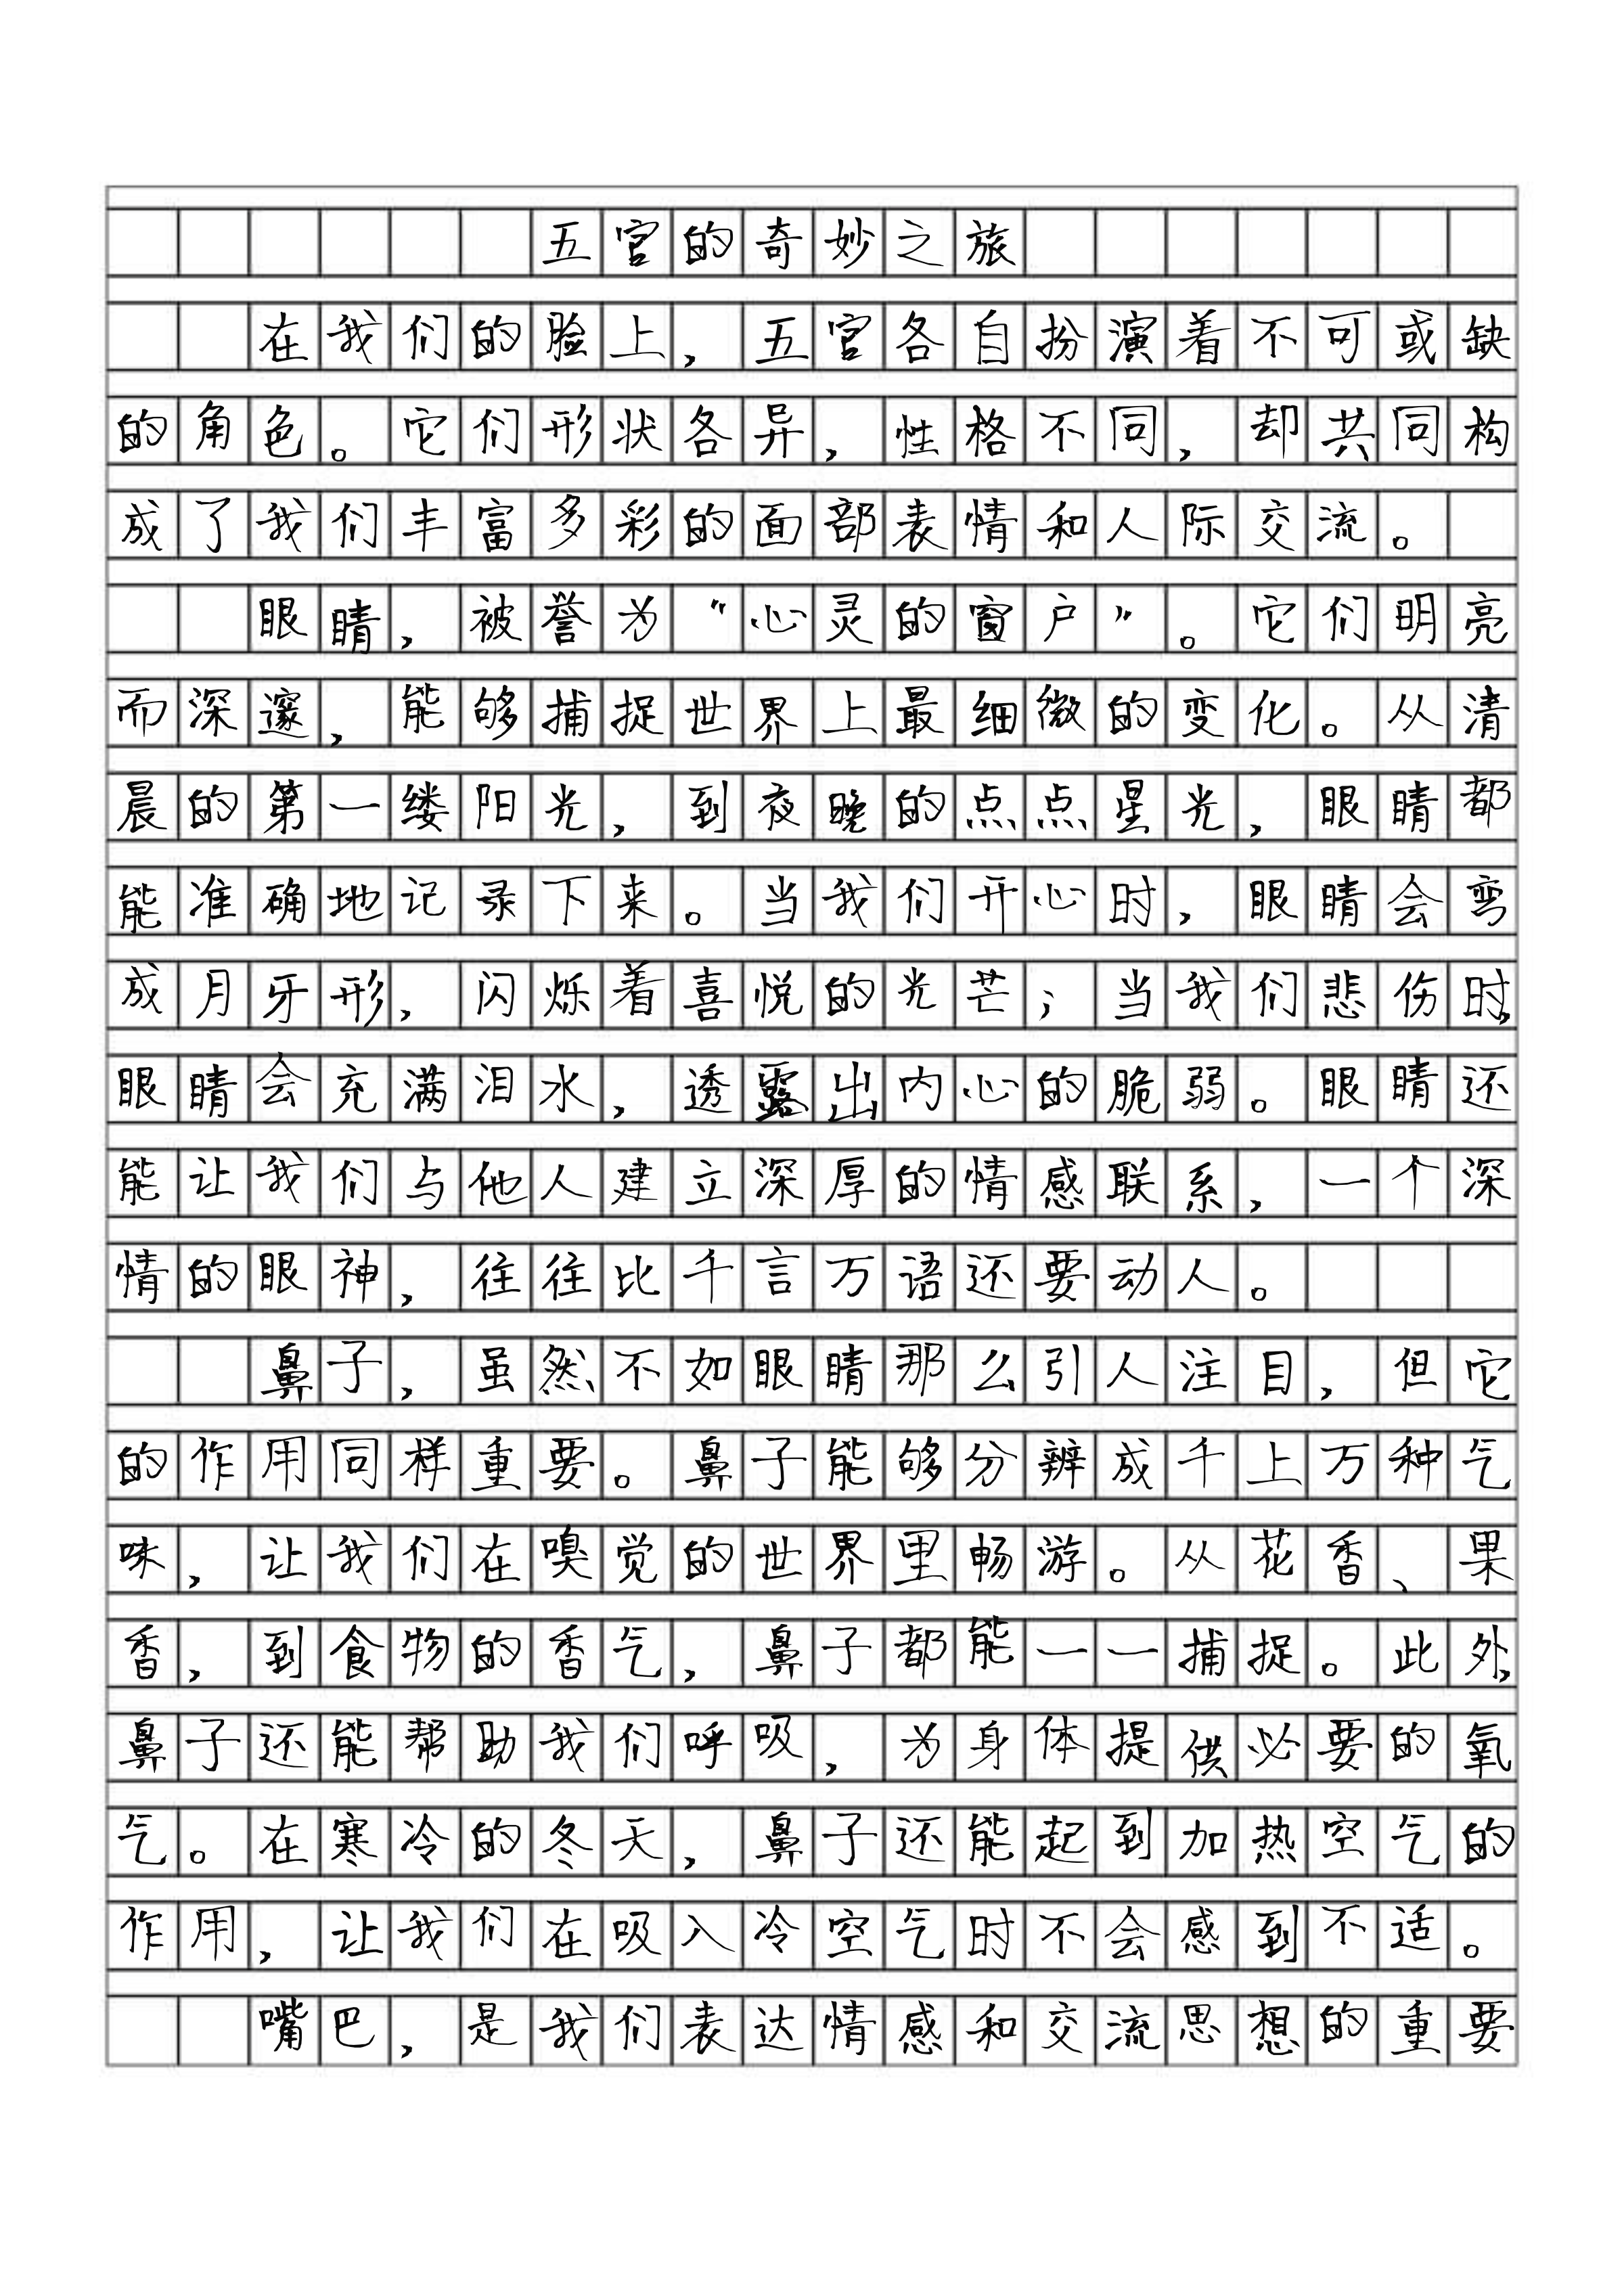 五官的奇妙之旅
在我们的脸上，五官各自扮演着不可或缺
的角色。它们形状各异，性格不同，却共同构
成了我们丰富多彩的面部表情和人际交流。
眼睛，被誉为“心灵的窗户”。它们明亮
而深邃，能够捕捉世界上最细微的变化。从清
晨的第一缕阳光，到夜晚的点点星光，眼睛都
能准确地记录下来。当我们开心时，眼睛会弯
成月牙形，闪烁着喜悦的光芒；当我们悲伤时，
眼睛会充满泪水，透露出内心的脆弱。眼睛还
能让我们与他人建立深厚的情感联系，一个深
情的眼神，往往比千言万语还要动人。
鼻子，虽然不如眼睛那么引人注目，但它
的作用同样重要。鼻子能够分辨成千上万种气
味，让我们在嗅觉的世界里畅游。从花香、果
香，到食物的香气，鼻子都能一一捕捉。此外，
鼻子还能帮助我们呼吸，为身体提供必要的氧
气。在寒冷的冬天，鼻子还能起到加热空气的
作用，让我们在吸入冷空气时不会感到不适。
嘴巴，是我们表达情感和交流思想的重要